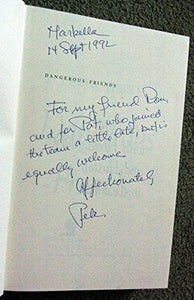 Marbella
14 Sept 1992
DANGEROUS FRIENDS
For my friend Don,
and for Pat, who joined
the team a little late, but is
equally welcome
Affectionately
Peter